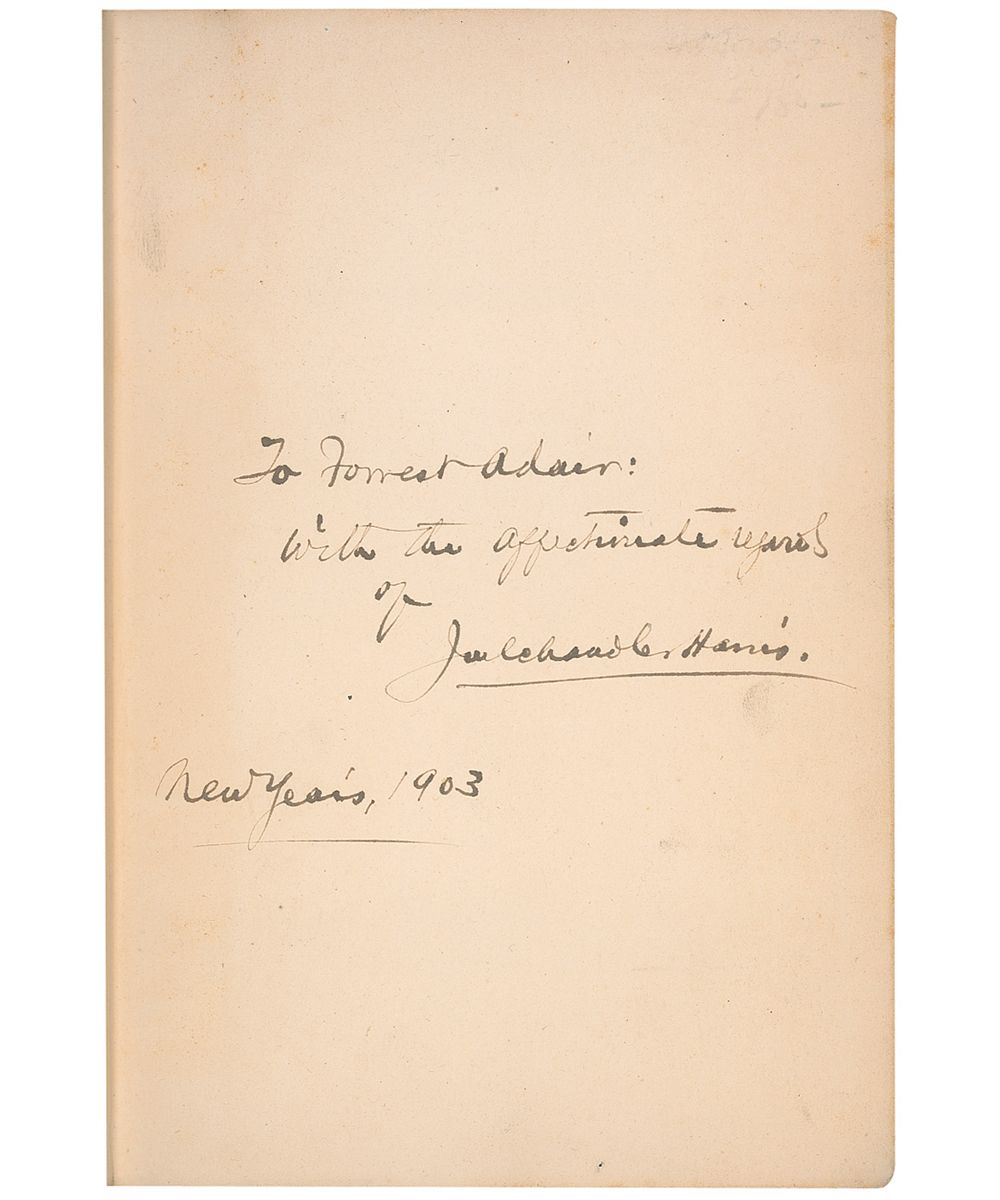 To Forrest Adair:
With the affectionate regards
of
Joel Chandler Harris.
New Year's, 1903